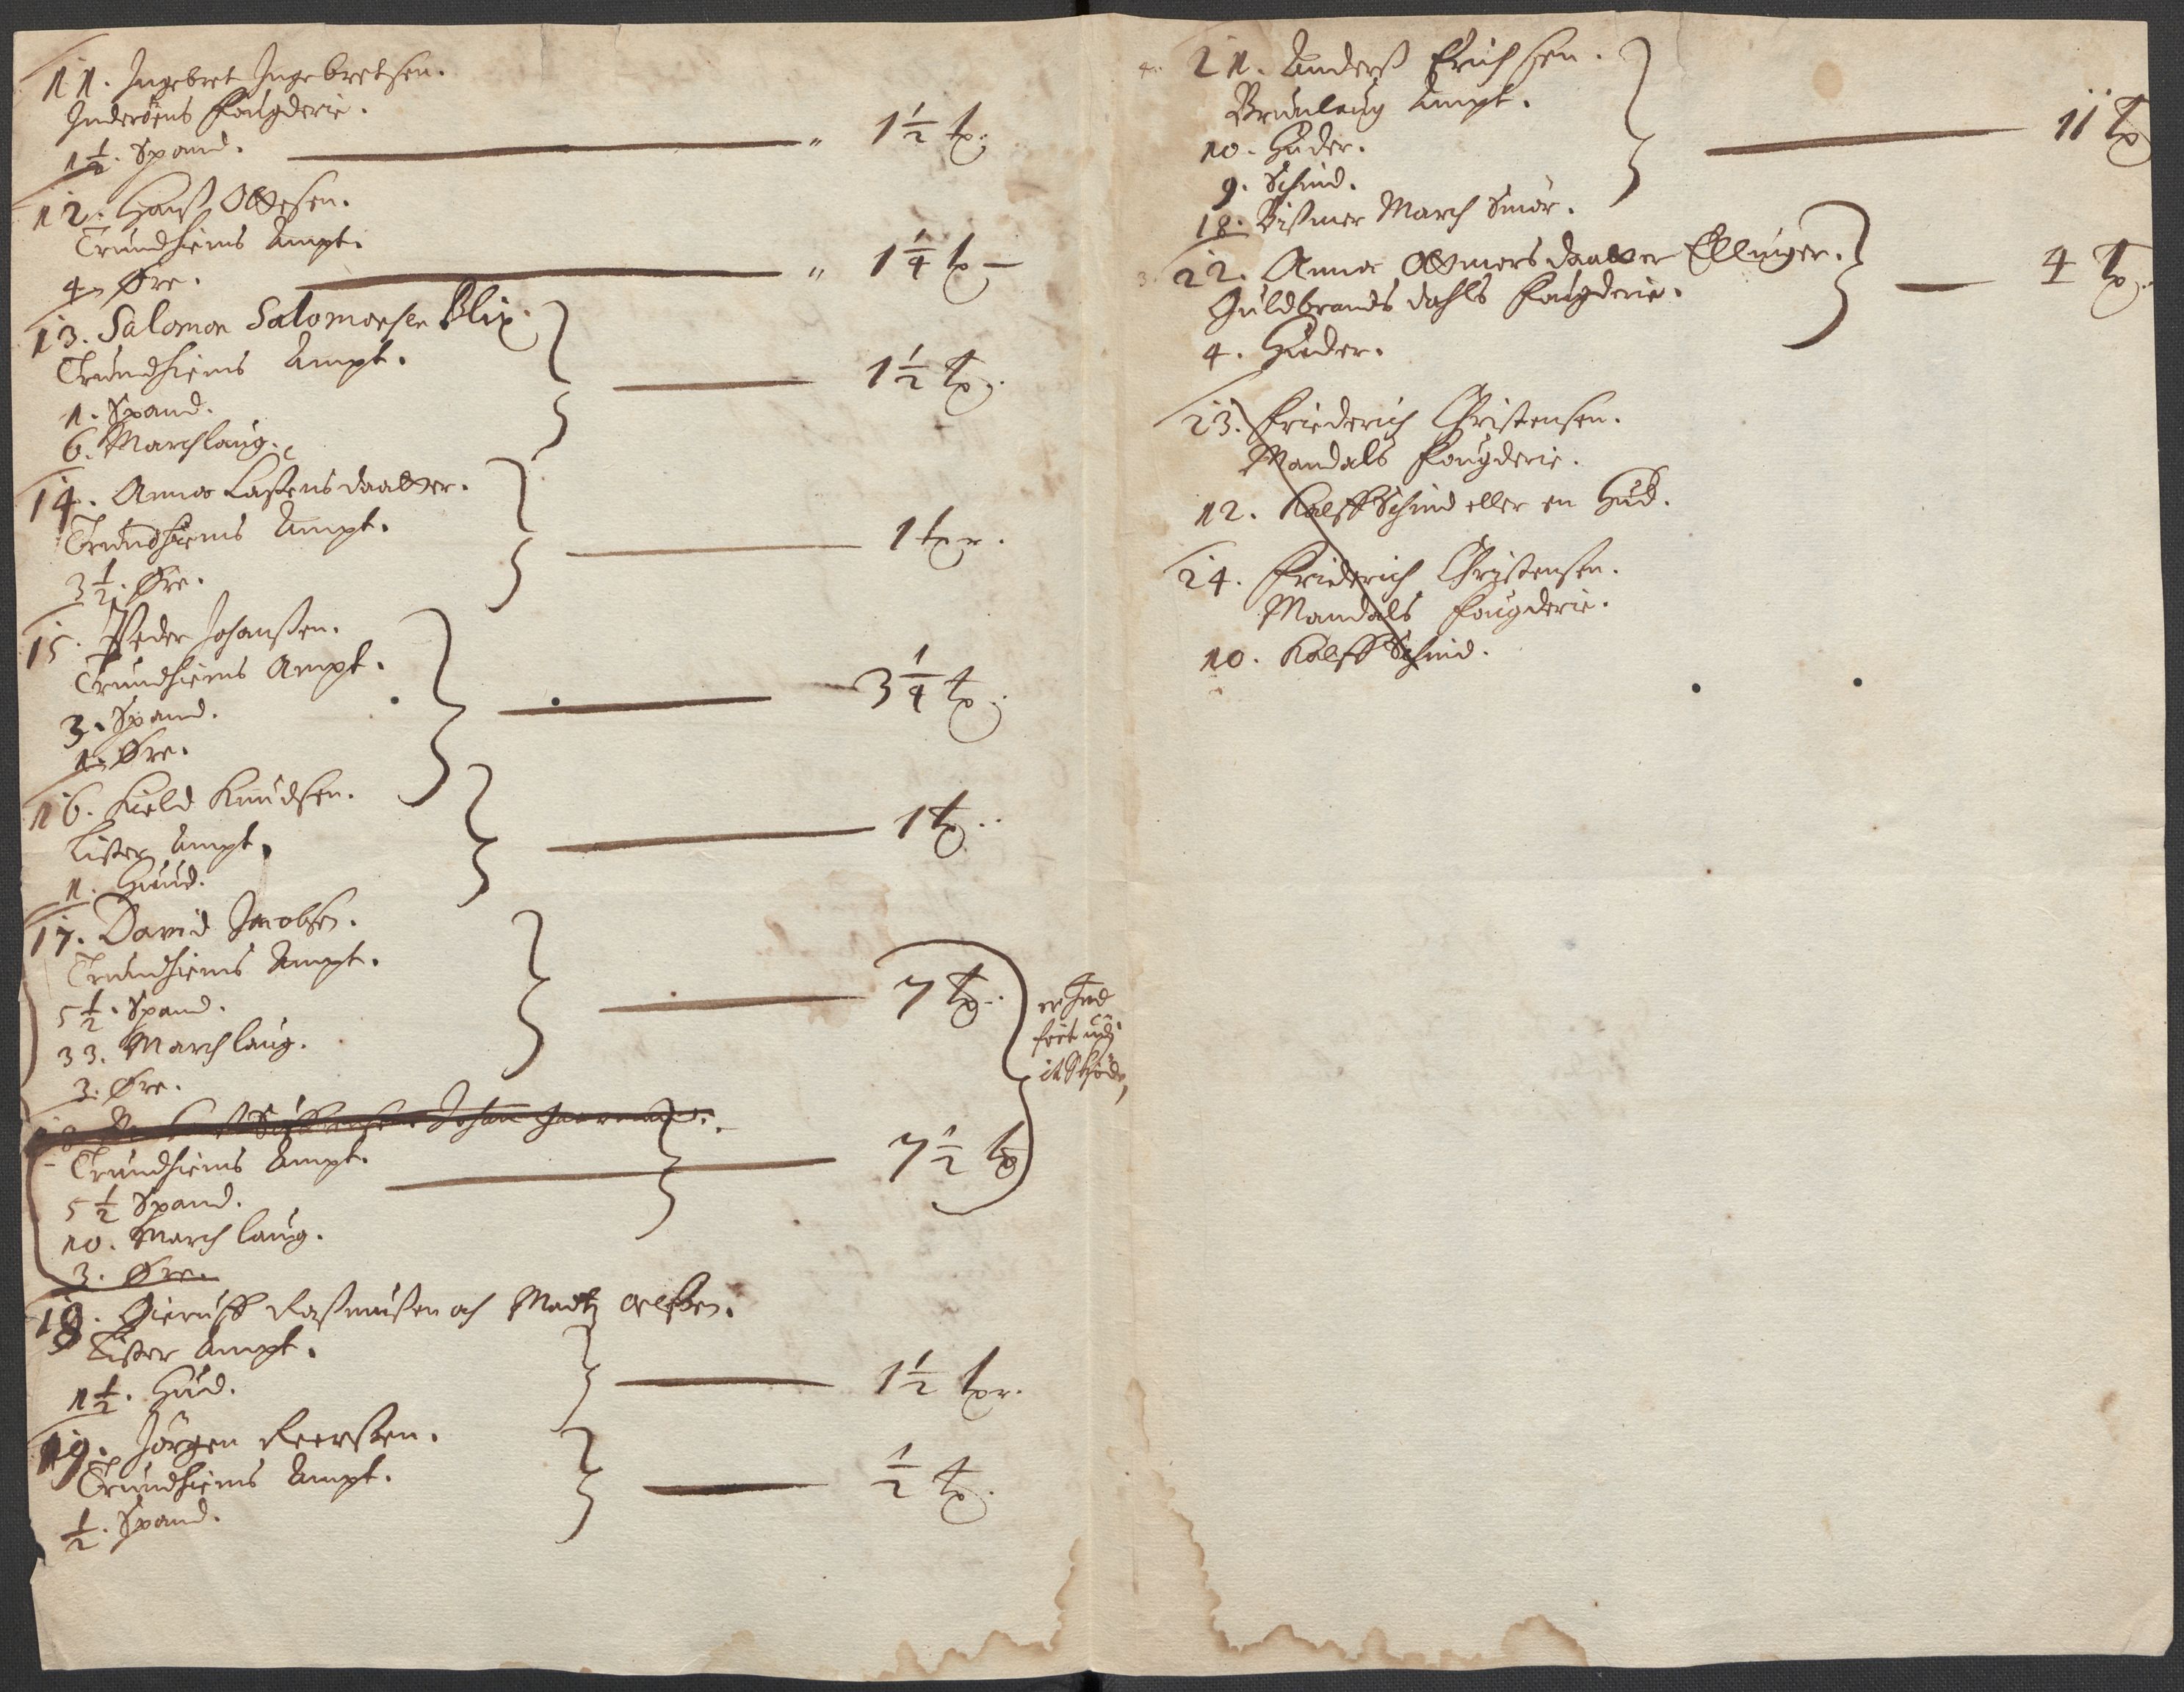 11. Ingebret Ingebretsen.
Inderöens fougderie.
1½. Spand. " 1½ tr.
12. Hanß Ottesen.
Trundhiems Ampt.
4. Øre. " 1¼ tr
13. Salomon Salomonsen Blix.
Trundhiems Ampt.
1. Spand. 1½ tr.
6. Marchlaug.
14. Anna Laßensdaatter.
Trundhiems Ampt.
3½. Øre. 1 tr.
15. Peder Johanßen.
Trundhiems Ampt.
3. Spand. 3¼ tr.
1. Øre.
16. Kield Knudsen.
Lister Ampt.
1. Huud. 1 tr.
17. David Jacobsen.
Trundhiems Ampt.
5½. Spand. 7 tr.
33. Marchlaug.
3. Øre.
er Ind
fört udj
it Skiöde,
18. Johan
Trundhiems Ampt.
5½ Spand. 7½ tr
10. Marchlaug.
3. Øre.
18. Gieruff Raßmußen och Madtz Olßen.
Lister Ampt.
1½. Hud. 1½ tr.
19. Jörgen
Trundhiems Ampt.
½. Spand. ½ tr.
21. Anderß Erichsen.
Brunlaug Ampt.
10. Huder. 11 tr
9. Schind.
18. Bißmer March Smör.
22. Anna Ottmersdaatter Ellinger.
Guldbrandsdahls fougderie. 4 tr.
4. Huder.
23. Friederich Christensen.
Mandals fougderie.
12. Kalffschind eller en Hud.
24. Friederich Christensen.
Mandals fougderie.
10. Kalffschind.